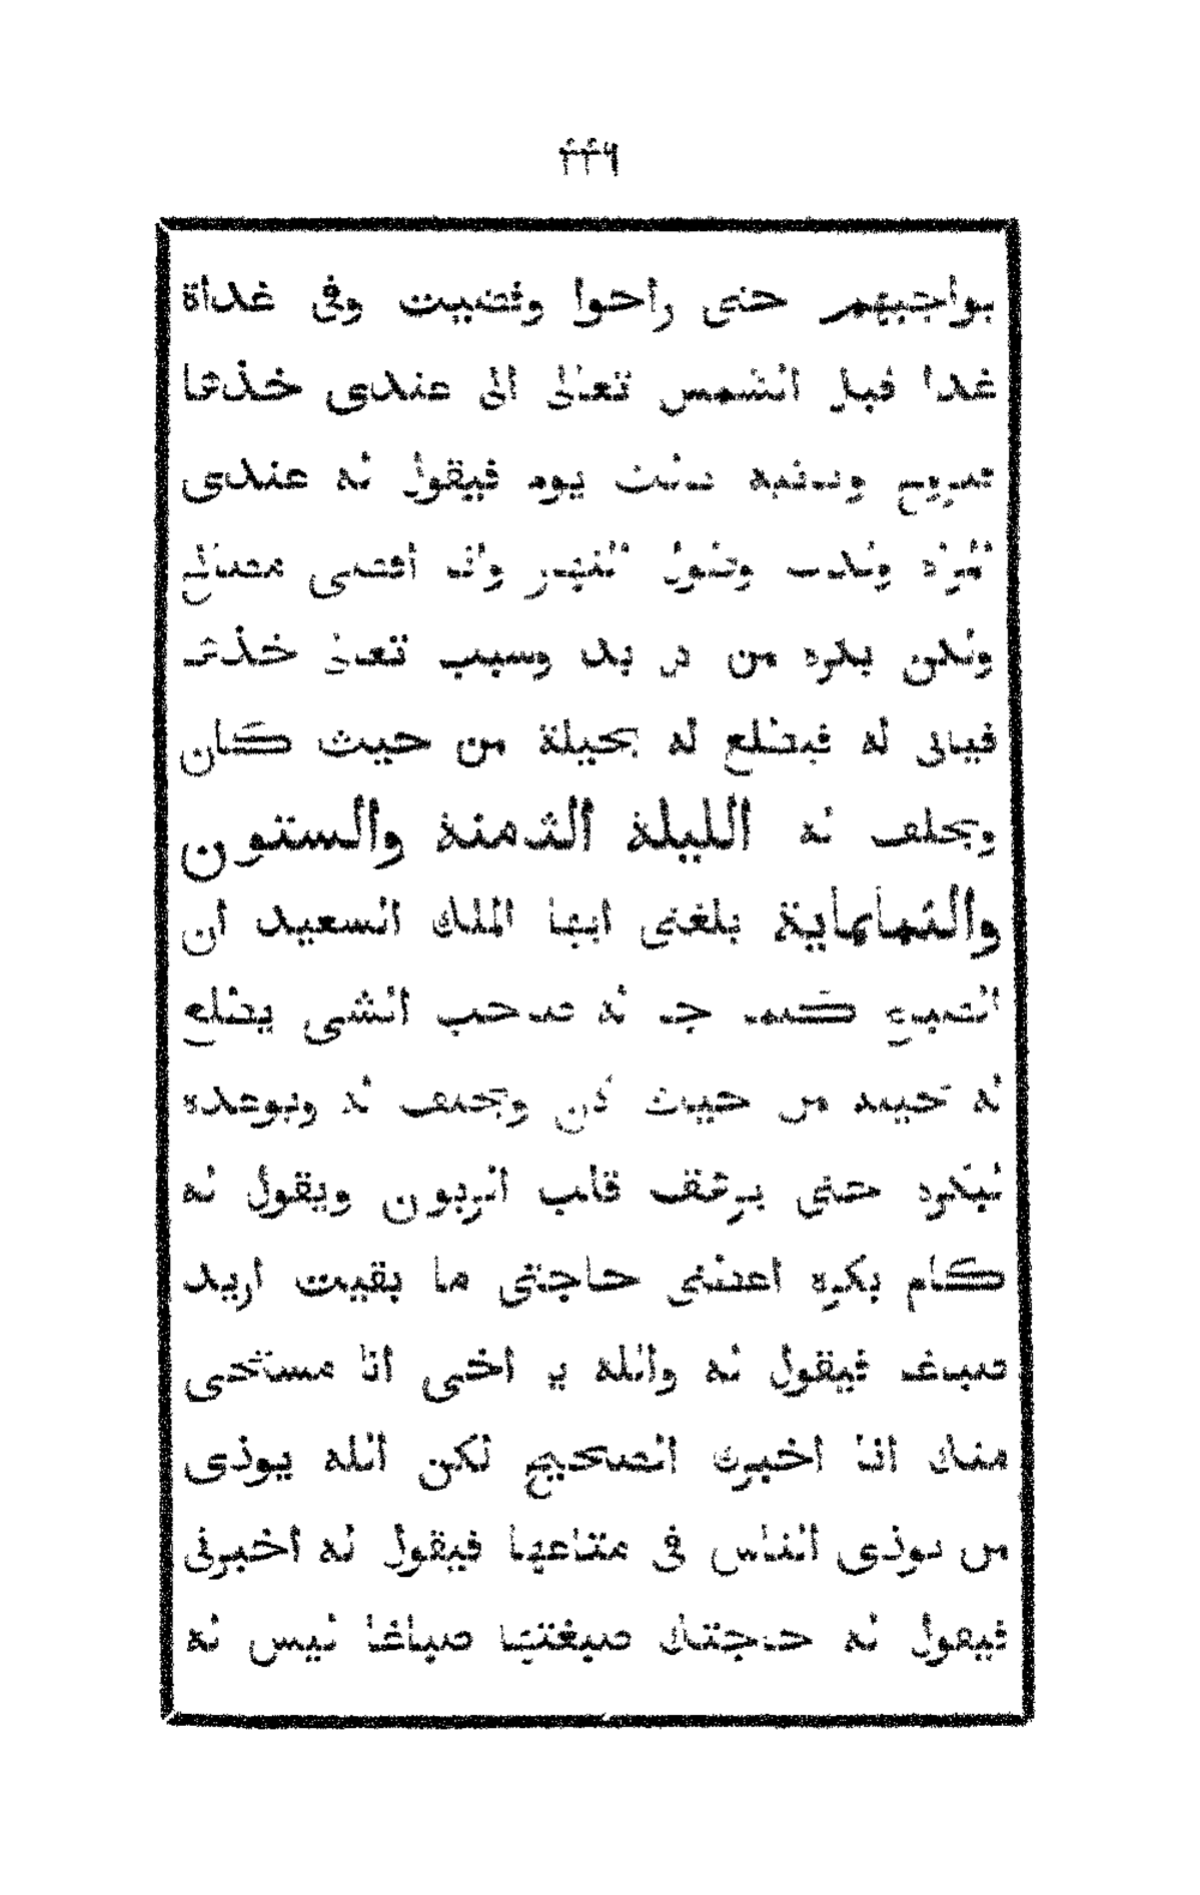 ٢٢٩
بواجبهم حتى راحوا وقضيت وفى غداة
غدا قبل الشمس تعالى الى عندى خذها
فيروح يوم فيقول له عندى
وانا اقضى مصالح
ولكن بكره من كل بد وسبب تعالى خذها
فياتى له فيطلع له بحيلة من حيث كان
ويحلف له الليلة الثامنة والستون
والثمانماية بلغنى ايها الملك السعيد ان
الصباغ كلما جا له صاحب الشى يطلع
له حيلة من حيث كان ويحلف له ويوعده
لبكره حتى يرهق قلب الزبون ويقول له
كام بكره اعطنى حاجتى ما بقيت اريد
صباغ فيقول له والله يا اخى انا مستحى
منك انا اخبرك الصحيح لكن الله يوذى
من يوذى الناس فى متاعها فيقول له اخبرنى
فيقول له حاجتك صبغتها صباغا ليس له